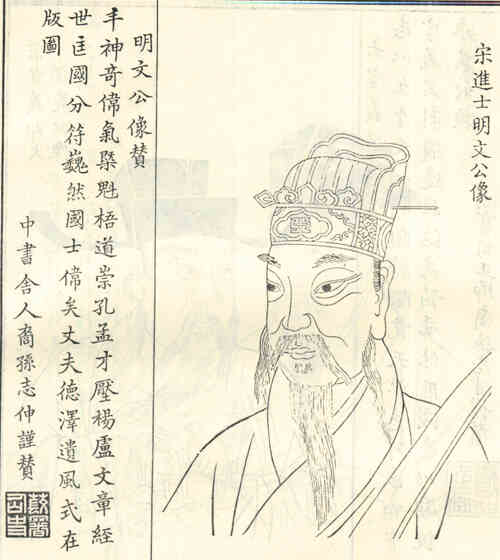 宋進士明文公像
明文公像贊
丰神奇偉氣槩魁梧道崇孔孟才壓楊盧文章經
世匡國分符巍然國士偉矣丈夫德澤遺風式在
版圖
中書舍人裔孫志仲謹贊